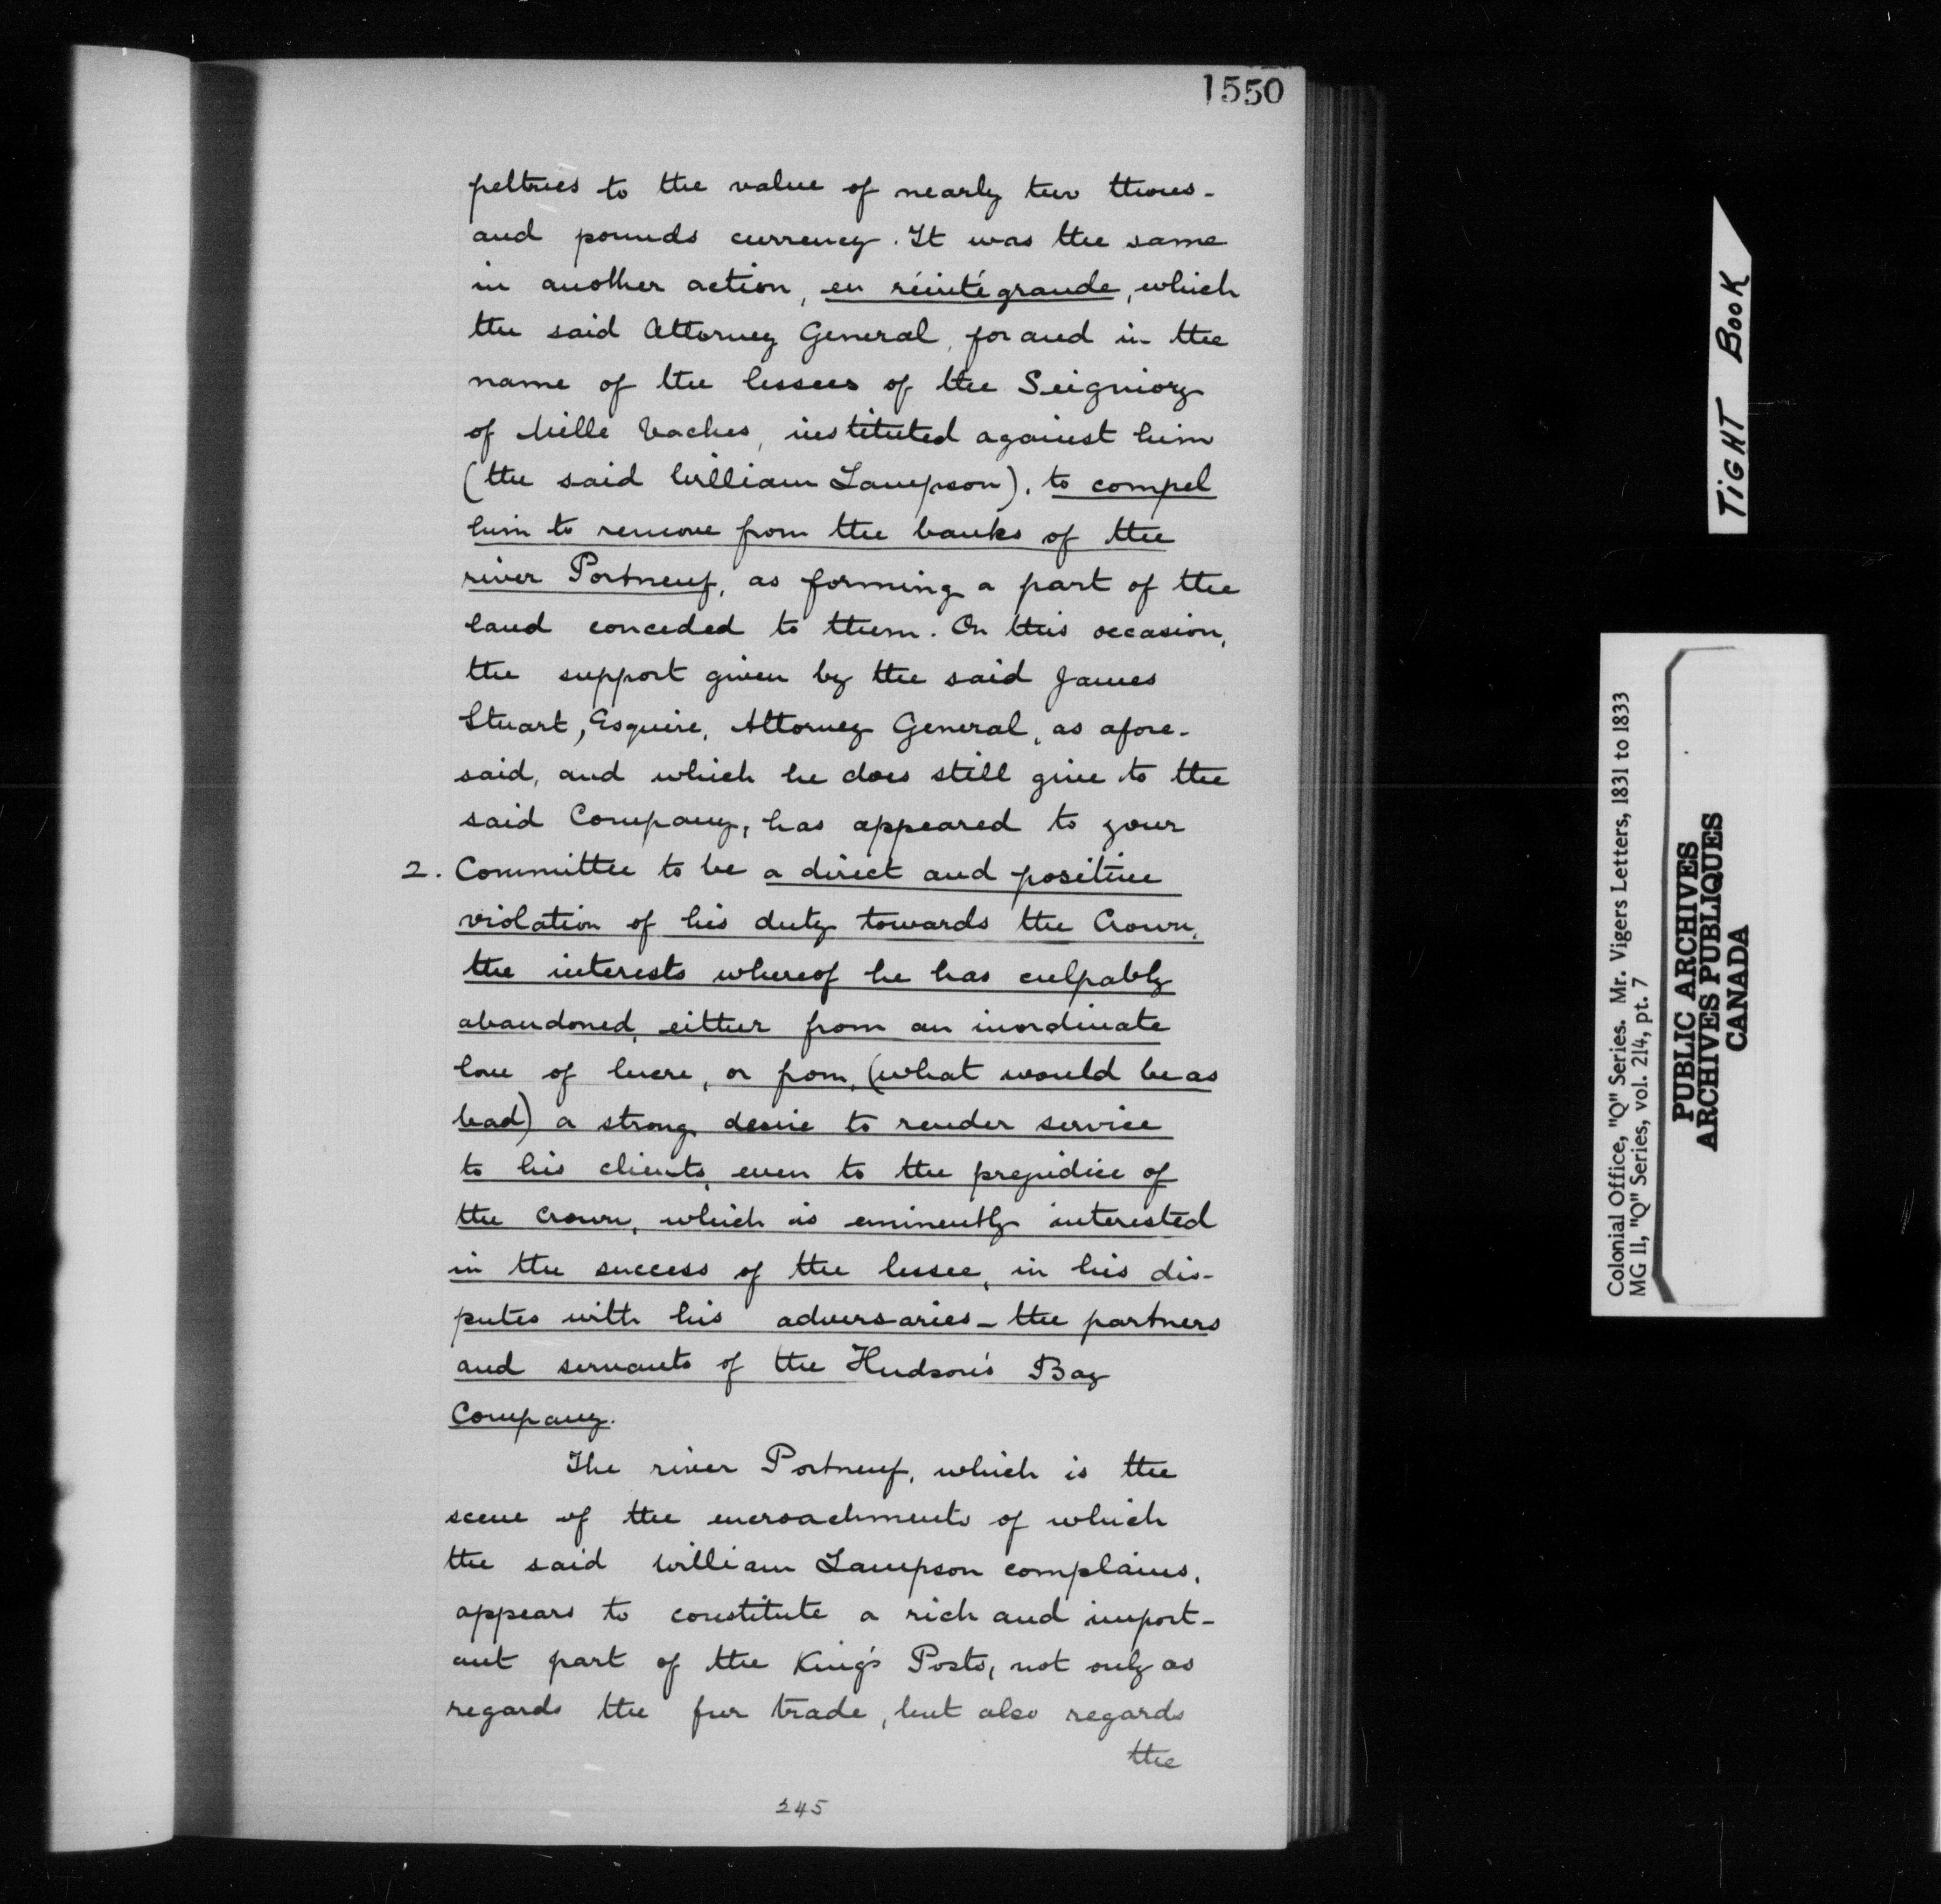 1550
peltries to the value of nearly two thous-
and pounds currency. It was the same
in another action, en réintégrande, which
the said Attorney General, for and in the
name of the lessees of the Seigniory
of Mille Vaches, instituted against him
(the said William Lampson), to compel
him to remove from the banks of the
river Portneuf, as forming a part of the
land conceded to them. On this occasion,
the support given by the said James
Stuart, Esquire, Attorney General, as afore-
said, and which he does still give to the
said Company, has appeared to your
2. Committee to be a direct and positive
violation of his duty towards the Crown,
the interests whereof he has culpably
abandoned, either from an inordinate
love of lucre, or from, (what would be as
bad) a strong desire to render service
to his clients, even to the prejudice of
the Crown, which is eminently interested
in the success of the lessee, in his dis-
putes with his adversaries - the partners
and servants of the Hudson's Bay
Company.
The river Portneuf, which is the
scene of the encroachments of which
the said William Lampson complains,
appears to constitute a rich and import-
ant part of the King's Posts, not only as
regards the fur trade, but also regards
the
245
TIGHT BOOK
Colonial Office, "Q" Series. Mr. Vigers Letters, 1831 to 1833
MG 11, "Q" Series, vol. 214, pt. 7
PUBLIC ARCHIVES
ARCHIVES PUBLIQUES
CANADA